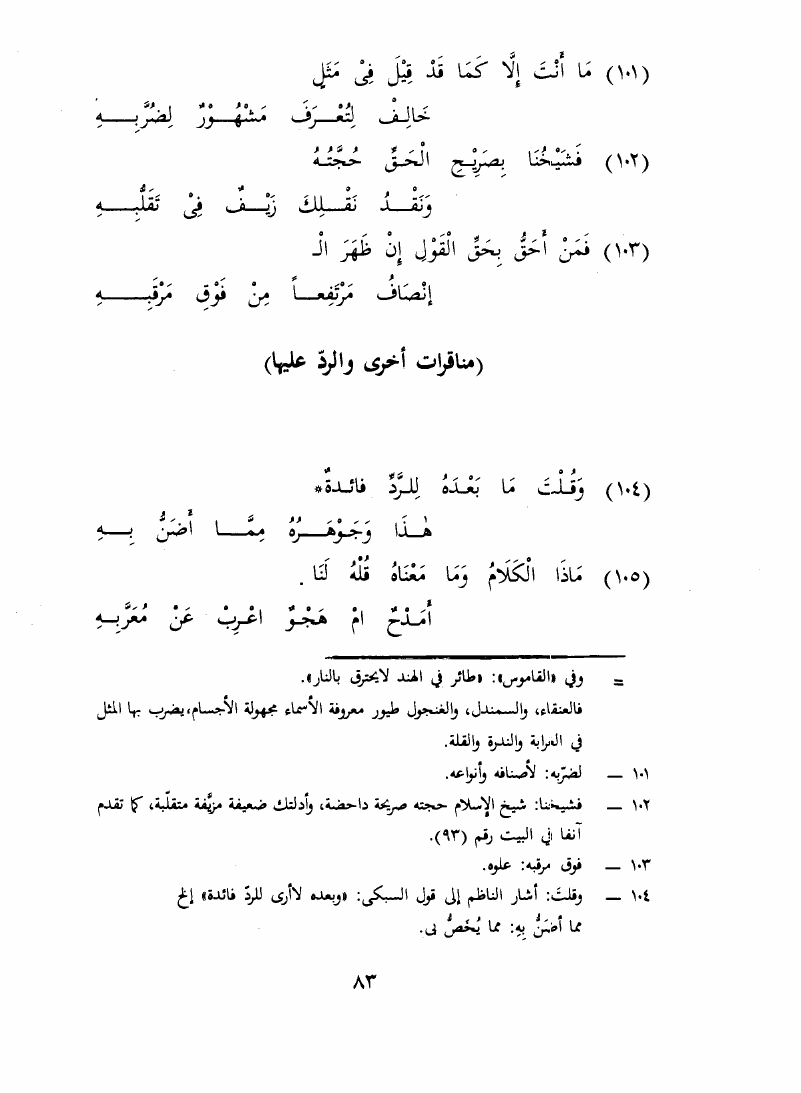 (١٠١) مَا أَنْتَ إِلَّا كَمَا قَدْ قِيْلَ فِيْ مَثَلٍ
خَالِفْ لِتُعْرَفَ مَشْهُورٌ لِضُرَّبِهِ
(١٠٢) فَشَيْخُنَا بِصَرِيْحِ الْحَقِّ حُجَّتُهُ
وَنَقْدُ نَقْلِكَ زَيْفٌ فِيْ تَقَلُّبِهِ
(١٠٣) فَمَنْ أَحَقُّ بِحَقِّ الْقَوْلِ إِنْ ظَهَرَ الْـ
إِنْصَافُ مَرْتَفِعاً مِنْ فَوْقِ مَرْقَبِهِ
(مناقرات أخرى والردّ عليها)
(١٠٤) وَقُلْتَ مَا بَعْدَهُ لِلرَّدِّ فائدةٌ*
هٰذَا وَجَوْهَرُهُ مِمَّا أَضَنُّ بِهِ
(١٠٥) مَاذَا الْكَلَامُ وَمَا مَعْنَاهُ قُلْهُ لَنَا .
أَمَدْحٌ امْ هَجْوٌ اعْرِبْ عَنْ مُعَرَّبِهِ
= وفي «القاموس»: «طائر في الهند لايحترق بالنار».
فالعنقاء، والسمندل، والغنجول طيور معروفة الأسماء مجهولة الأجسام،يضرب بها المثل
في الغرابة والندرة والقلة.
١٠١ — لضرّبه: لأصنافه وأنواعه.
١٠٢ — فشيخنا: شيخ الإسلام حجته صريحة داحضة، وأدلتك ضعيفة مزيَّفة متقلّبة، كما تقدم
آنفا في البيت رقم (٩٣).
١٠٣ — فوق مرقبه: علوه.
١٠٤ — وقلتَ: أشار الناظم إلى قول السبكى: «وبعده لاأرى للردّ فائدة» إلخ
مما أضَنُّ بِهِ: مما يُخَصُّ بى.
٨٣